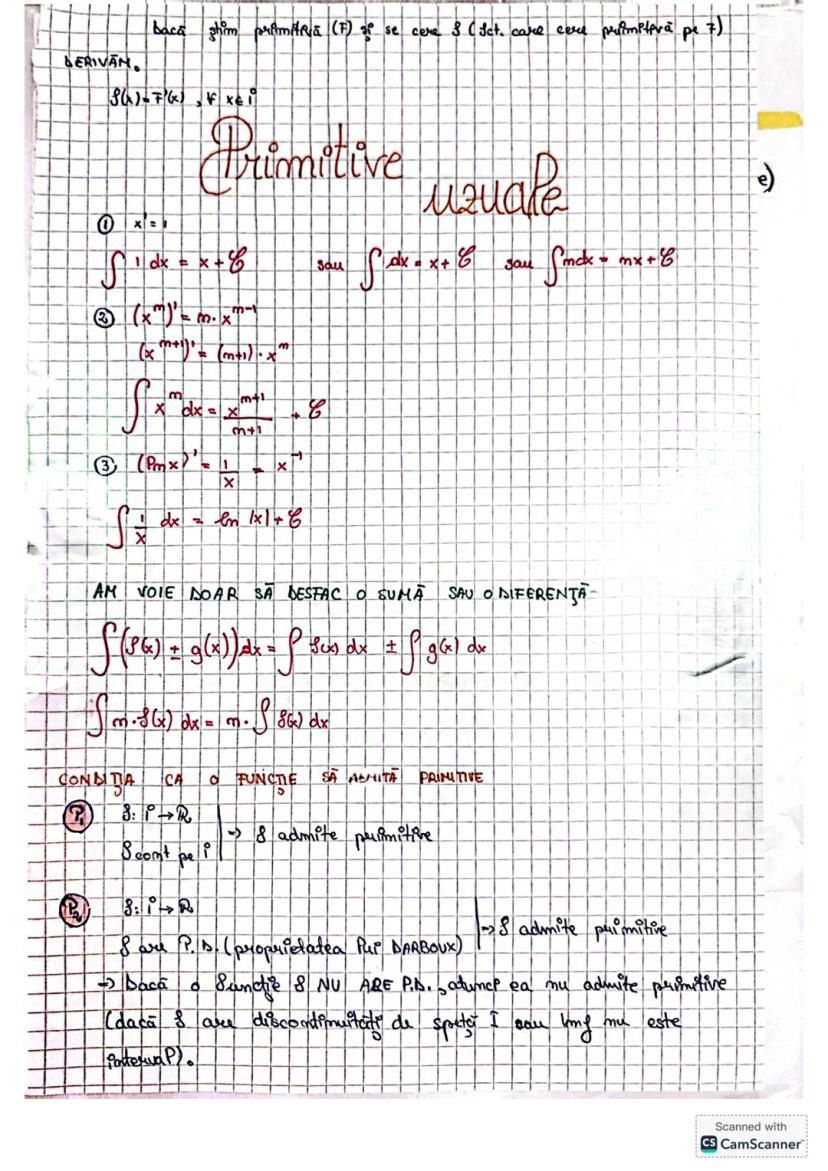 Dacă știm primitiva (F) și se cere f (fct. care cere primitivă pe F)
DERIVĂM.
f(x) = F'(x), ∀ x∈i
Primitive uzuale
e)
① x' = 1
∫ 1 dx = x + C sau ∫ dx = x + C sau ∫ m dx = mx + C
② (x^m)' = m · x^{m-1}
(x^{m+1})' = (m+1) · x^m
∫ x^m dx = x^{m+1}/(m+1) + C
③ (ln x)' = 1/x = x^{-1}
∫ 1/x dx = ln |x| + C
AM VOIE DOAR SĂ DESFAC O SUMĂ SAU O DIFERENȚĂ
∫ (f(x) ± g(x)) dx = ∫ f(x) dx ± ∫ g(x) dx
∫ m · f(x) dx = m · ∫ f(x) dx
CONDIȚIA CA O FUNCȚIE SĂ ADMITĂ PRIMITIVE
P₁ f: i → R
f cont pe i | ⇒ f admite primitive
P₂ f: i → R
f are P.D. (proprietatea lui DARBOUX) | ⇒ f admite primitive
⇒ Dacă o funcție f NU ARE P.D., atunci ea nu admite primitive
(dacă f are discontinuități de speță I sau Imf nu este
interval).
Scanned with
CS CamScanner